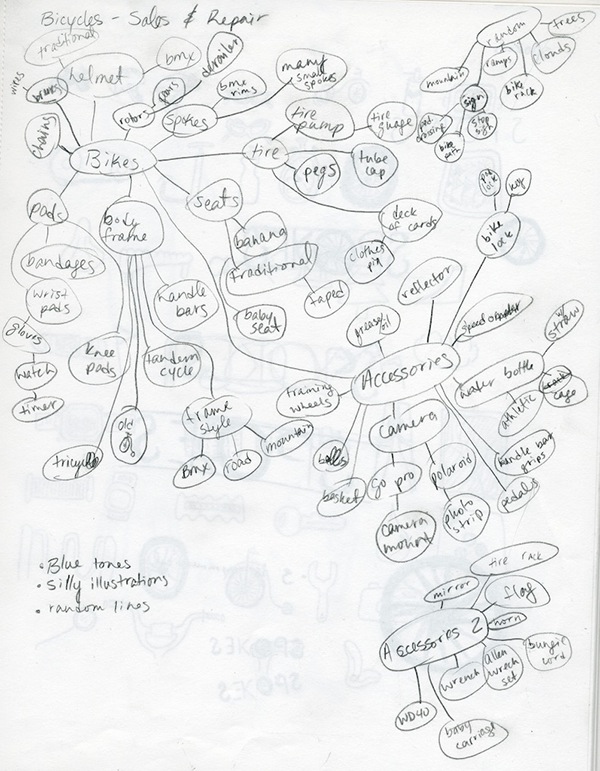 Bicycles - Sales & Repair
traditional
helmet
bmx
wires
brakes
chains
rotors
pans
derailer
spokes
bmx
rims
many
small
spokes
Bikes
tire
tire
pump
tire
guage
tube
cap
pegs
deck
of cards
clothes
pin
seats
banana
traditional
taped
baby
seat
pads
bandages
wrist
pads
gloves
watch
timer
knee
pads
body
frame
handle
bars
tandem
cycle
tricycle
old
frame
style
Bmx
road
mountain
random
trees
clouds
ramps
bike
rack
mountain
sign
stop
sign
ped.
crossing
bike
path
pin
lock
key
bike
lock
Accessories
grease/oil
reflector
water bottle
w/
straw
athletic
cage
handle bar
grips
pedals
training
wheels
bells
basket
camera
go pro
camera
mount
polaroid
photo
strip
• Blue tones
• Silly illustrations
• random lines
Accessories 2
mirror
tire rack
flag
horn
bungie
cord
allen
wrech
set
wrench
WD40
baby
carriage